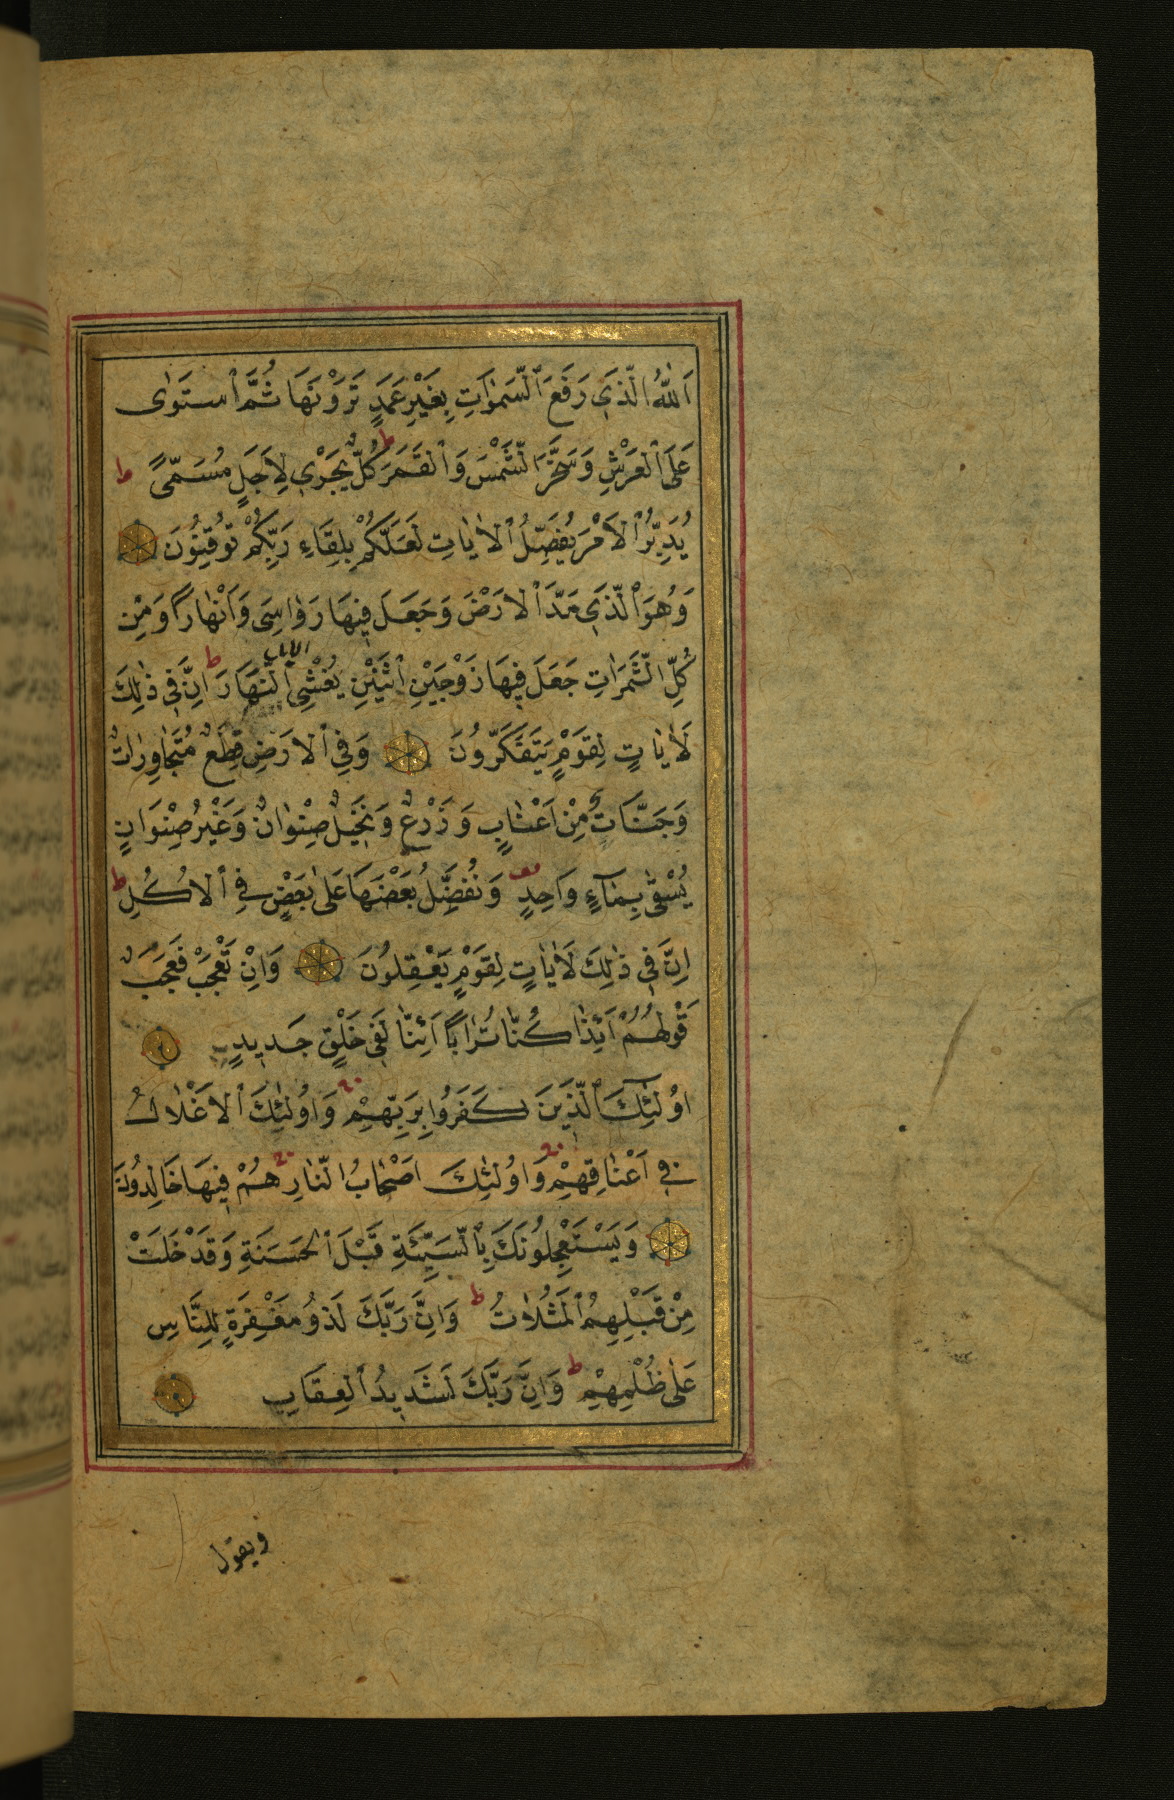 اَللّٰهُ الَّذَي رَفَعَ ٱلسَّمٰوَاتِ بِغَيْرِ عَمَدٍ تَرَوْنَهَا ثُمَّ ٱستَوٰى
عَلَى ٱلعَرْشِ وَسَخَّرَ الشَّمْسَ وَٱلقَمَرَ ط كُلٌّ يَجَرْيِ لِاَجَلٍ مُسَمّىً ط
يُدَبِّرُ ٱلاَمْرَ يُفَصِّلُ ٱلاٰيٰاتِ لَعَلَّكُمْ بِلِقَاءِ رَبِّكُمْ تُوقِنُونَ
وَهُوَ ٱلَّذَي مَدَّ ٱلارَضَ وَجَعَلَ فِيهَا رَوٰاسِىَ وَاَنْهٰارًا وَمِنْ
كُلِّ الثَّمَرٰاتِ جَعَلَ فِيهَا زَوْجَيْنِ ٱثْنَيْنِ يُغْشِى اليل ٱلنَّهَارَ ط اِنَّ فِي ذٰلِكَ
لَاٰيٰاتٍ لِقَوْمٍ يَتَفَكَّرُونَ وَفِي ٱلارَضِ قِطَعٌ مُتَجٰاوِرٰاتٌ
وَجَنَّاتٌ مِنْ اَعْنٰابٍ وَزَرْعٌ وَنَخَيلٌ صِنْوٰانٌ وَغَيْرُ صِنْوَانٍ
يُسْقٰى بِمٰآءٍ وَاحِدٍ وَنُفَضِّلُ بَعْضَهَا عَلٰى بَعْضٍ فِي ٱلاُكُلِ ط
اِنَّ فِي ذٰلِكَ لَاٰيٰاتٍ لِقَوْمٍ يَعْقِلُونَ وَاِنْ تَعْجَبْ فَعَجَبٌ
قَوْلُهُمْ اَئِذٰا كُنَّا تُرٰابًا اَئِنّٰا لَفِي خَلْقٍ جَدِيدٍ
اوُلٰئِكَ ٱلَّذَينَ كَفَرُوا بِرَبِّهِمْ وَاوُلٰئِكَ ٱلاَغْلٰالُ
فِي اَعْنٰاقِهِمْ وَاوُلٰئِكَ اَصْحٰابُ النّٰارِ هُمْ فِيهَا خَالِدُونَ
وَيَسْتَعْجِلُونَكَ بِٱلسَّيِّئَةِ قَبْلَ ٱلحَسَنَةِ وَقَدْ خَلَتْ
مِنْ قَبْلِهِمُ ٱلمَثُلَاتُ ط وَاِنَّ رَبَّكَ لَذوُ مَغْفِرَةٍ لِلنَّاسِ
عَلٰى ظُلْمِهِمْ ط وَاِنَّ رَبَّكَ لَشَدِيدُ ٱلعِقَابِ
ويقول